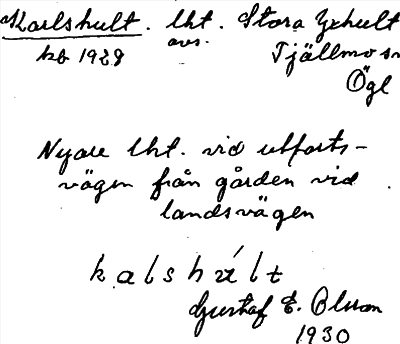 Karlshult. lht. Stora Yxhult
kb 1928 avs. Tjällmo sn
Ögl
Nyare lht. vid utfarts-
vägen från gården vid
landsvägen
kalshúlt
Gustaf E. Olsson
1930